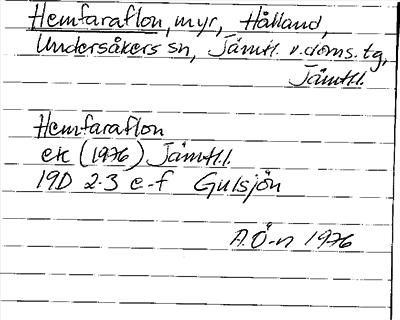 Hemfaraflon, myr, Hålland,
Undersåkers sn, Jämtl. v. doms. tg,
Jämtl.l.
Hemfaraflon
ek (1976) Jämtl.l.
19D 2-3 e-f Gulsjön
A.Ö-n 1976